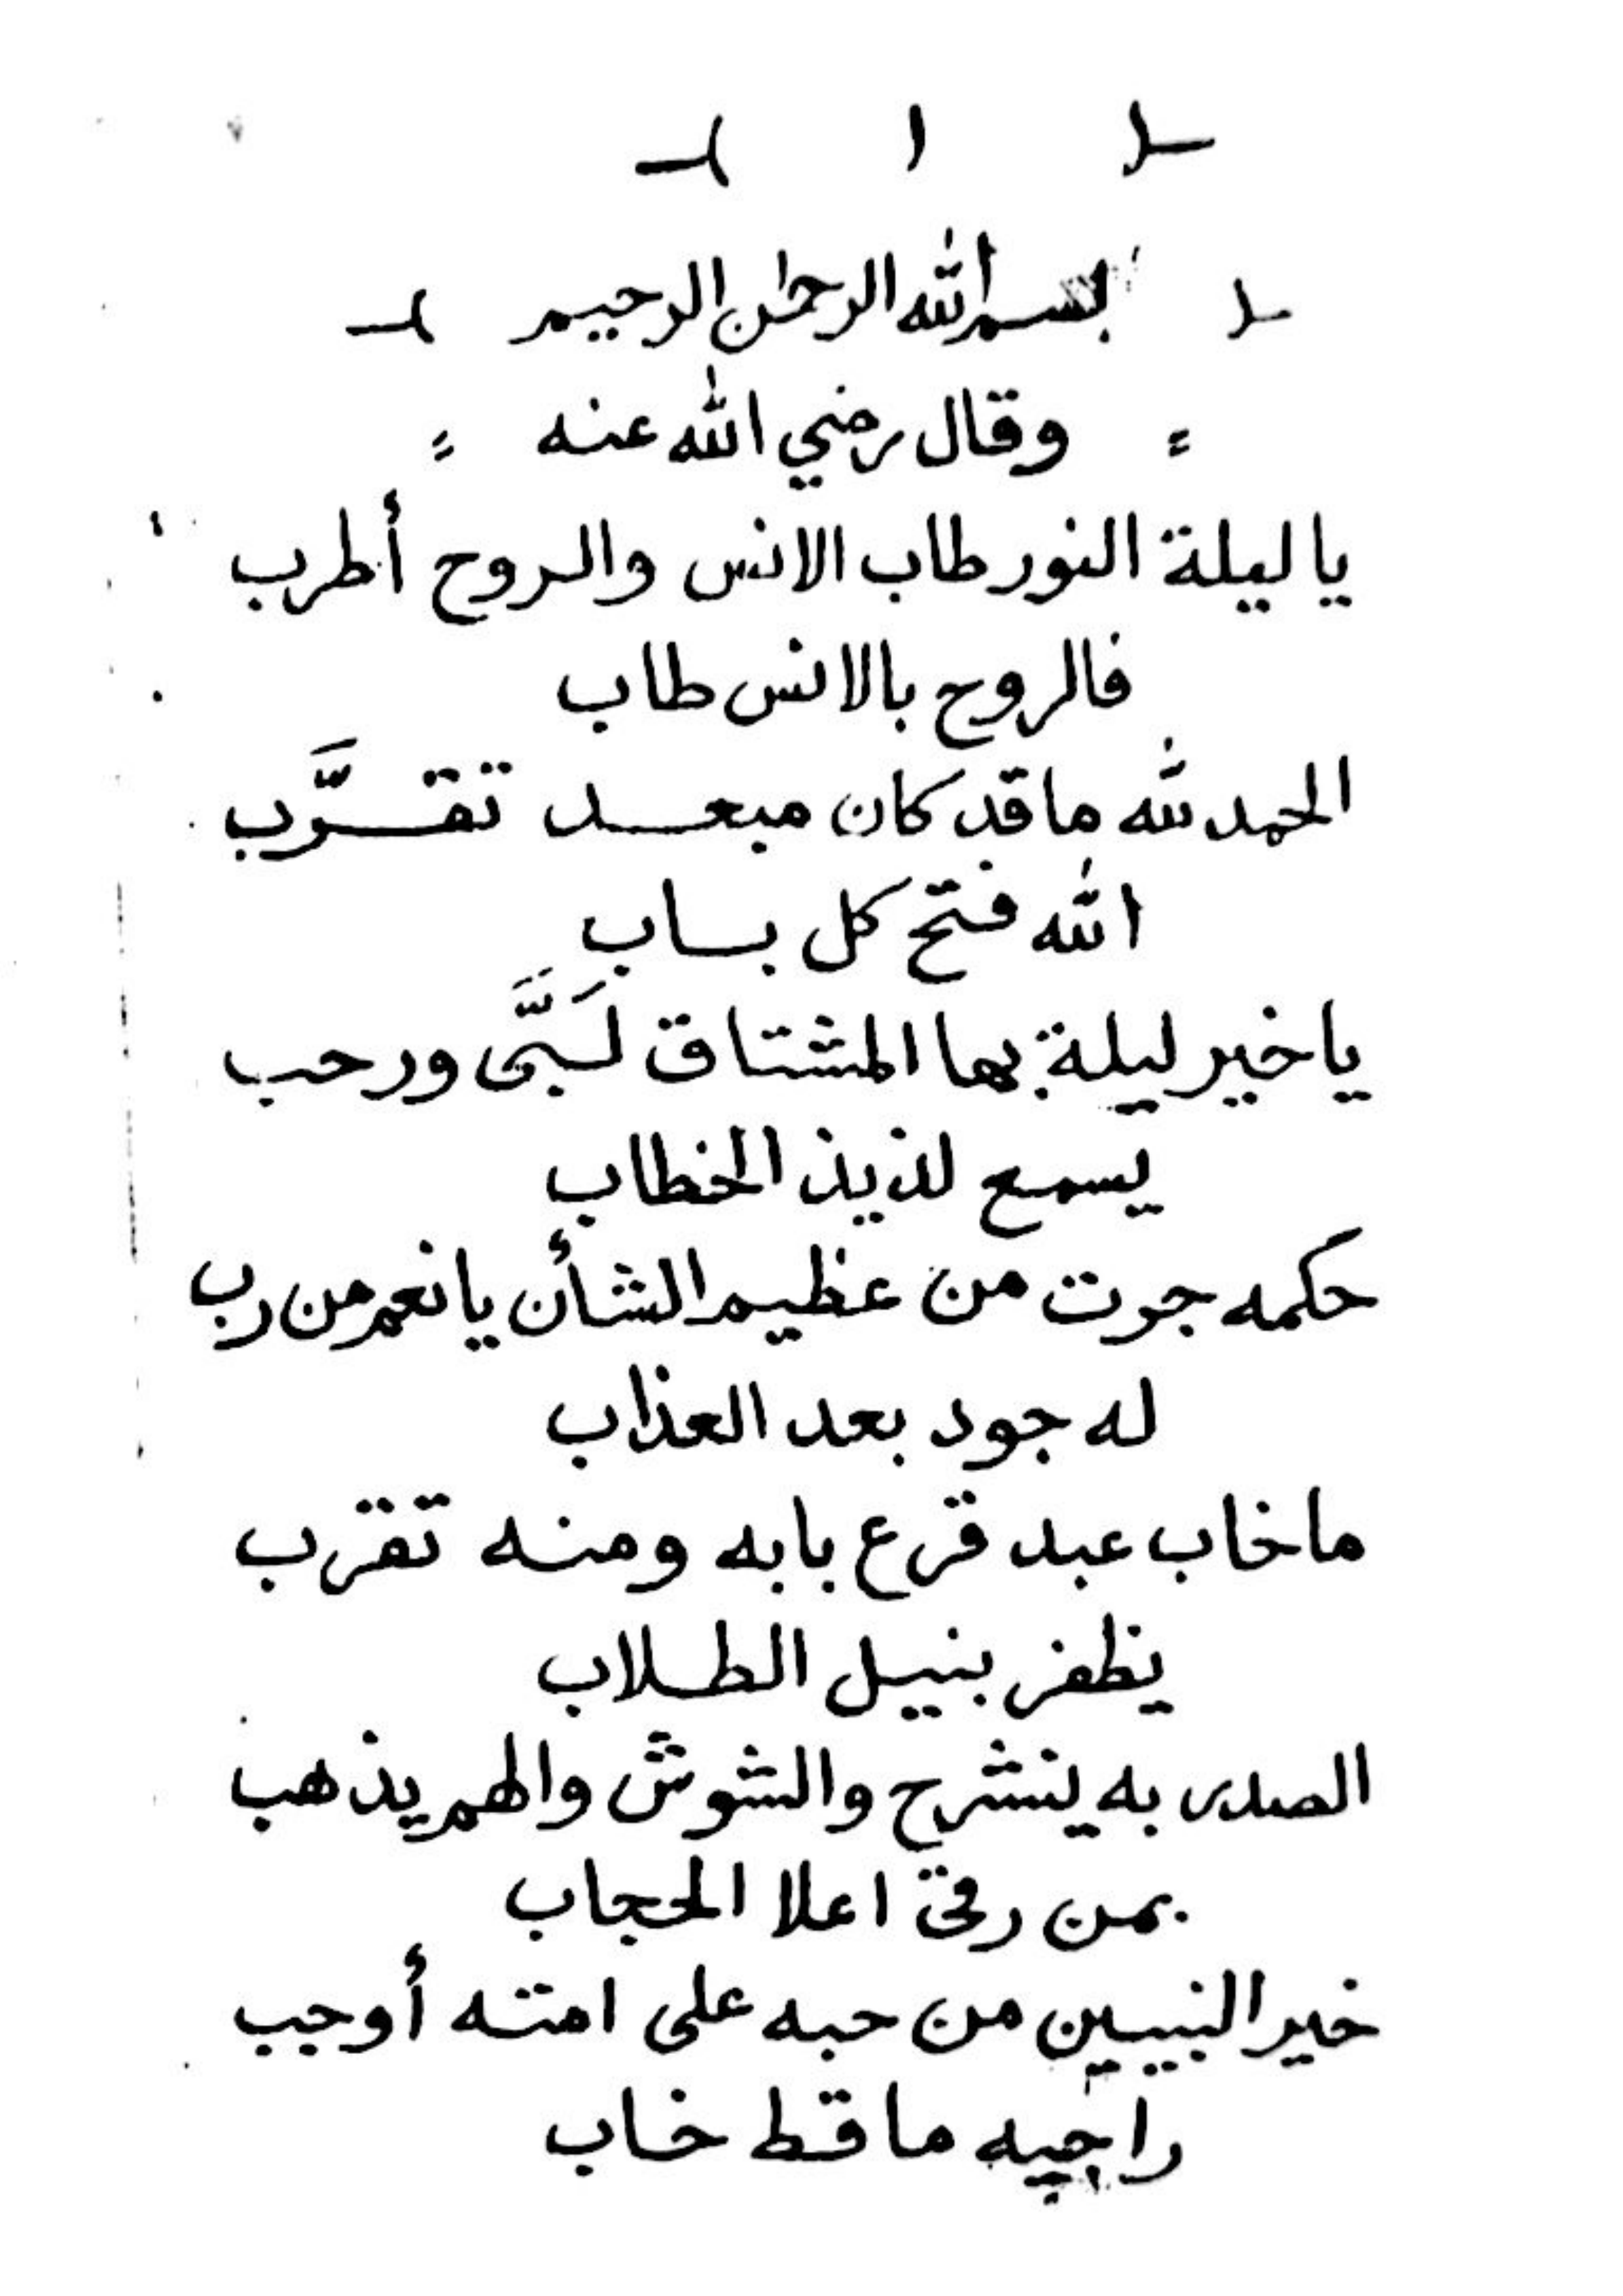 ( ١ )
( بسم الله الرحمٰن الرحيم )
= وقال رضي الله عنه =
يا ليلة النور طاب الانس والروح أطرب
فالروح بالانس طاب
الحمد لله ما قد كان مبعد تقرَّب
الله فتح كل باب
يا خير ليلة بها المشتاق لَبَّى ورحب
يسمع لذيذ الخطاب
حكمه جرت من عظيم الشأن يا نعم من رب
له جود بعد العذاب
ما خاب عبد قرع بابه ومنه تقرب
يظفر بنيل الطلاب
الصدر به ينشرح والشوش والهم يذهب
بمن رقى اعلا الحجاب
خير النبيين من حبه على امته أوجب
راجيه ما قط خاب